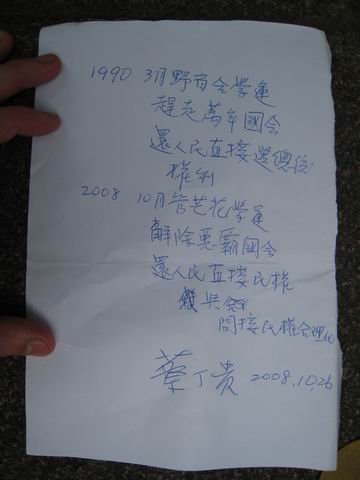 1990 3月野百合學運
趕走萬年國會
還人民直接選總統
權利
2008 10月管芒花學運
解除惡霸國會
還人民直接民權
與
間接民權合理化
蔡丁貴 2008.10.26